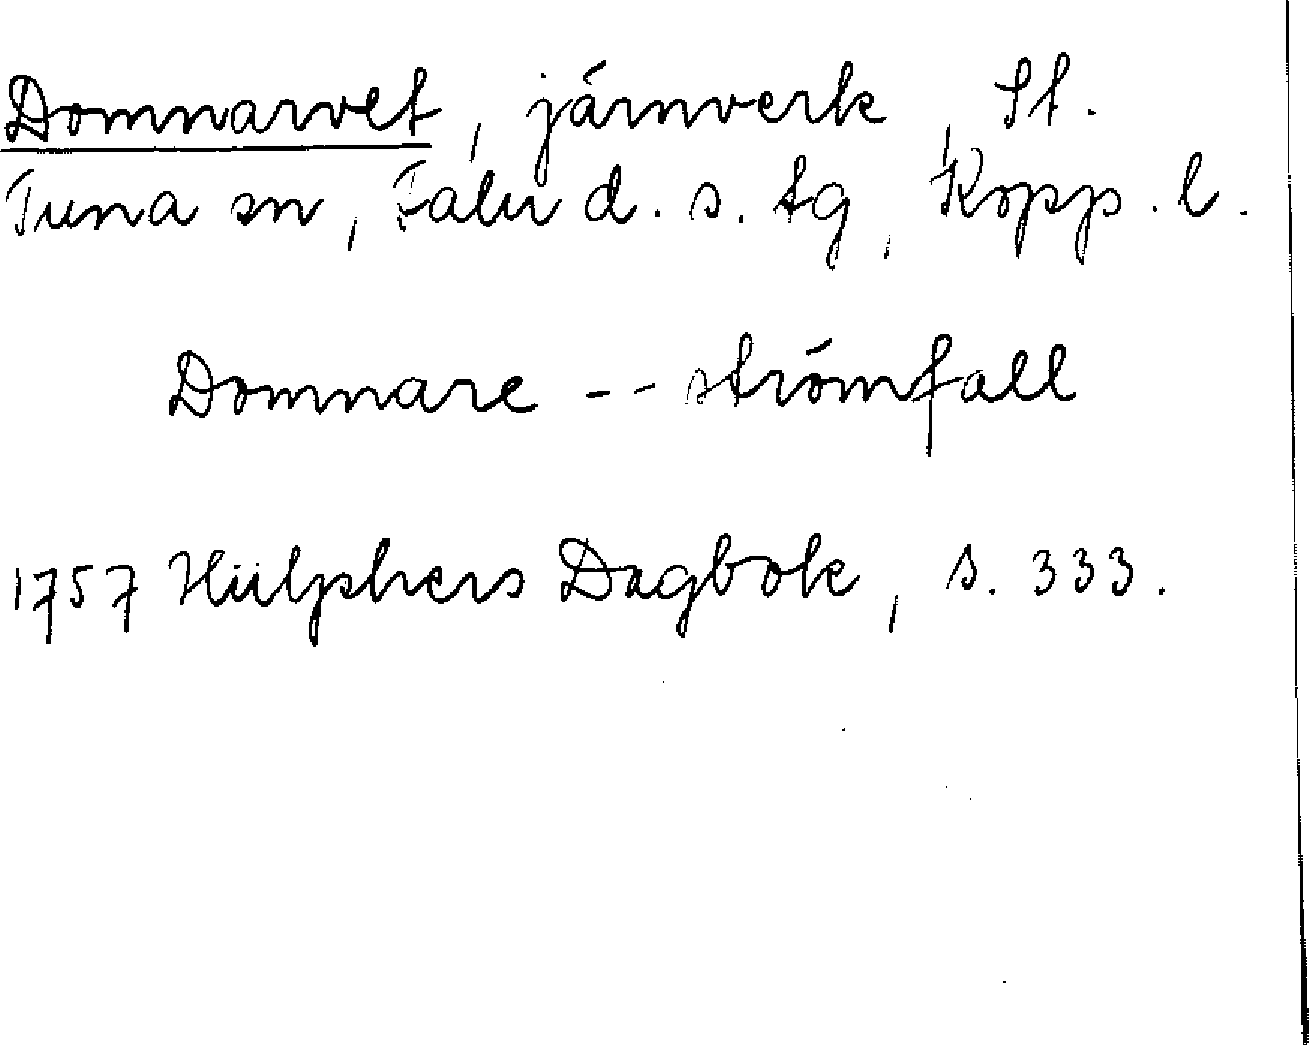 Domnarvet, järnverk, St.
Tuna sn, Falu d. s. tg, Kopp. l.
Domnare -- strömfall
1757 Hülphers Dagbok, s. 333.